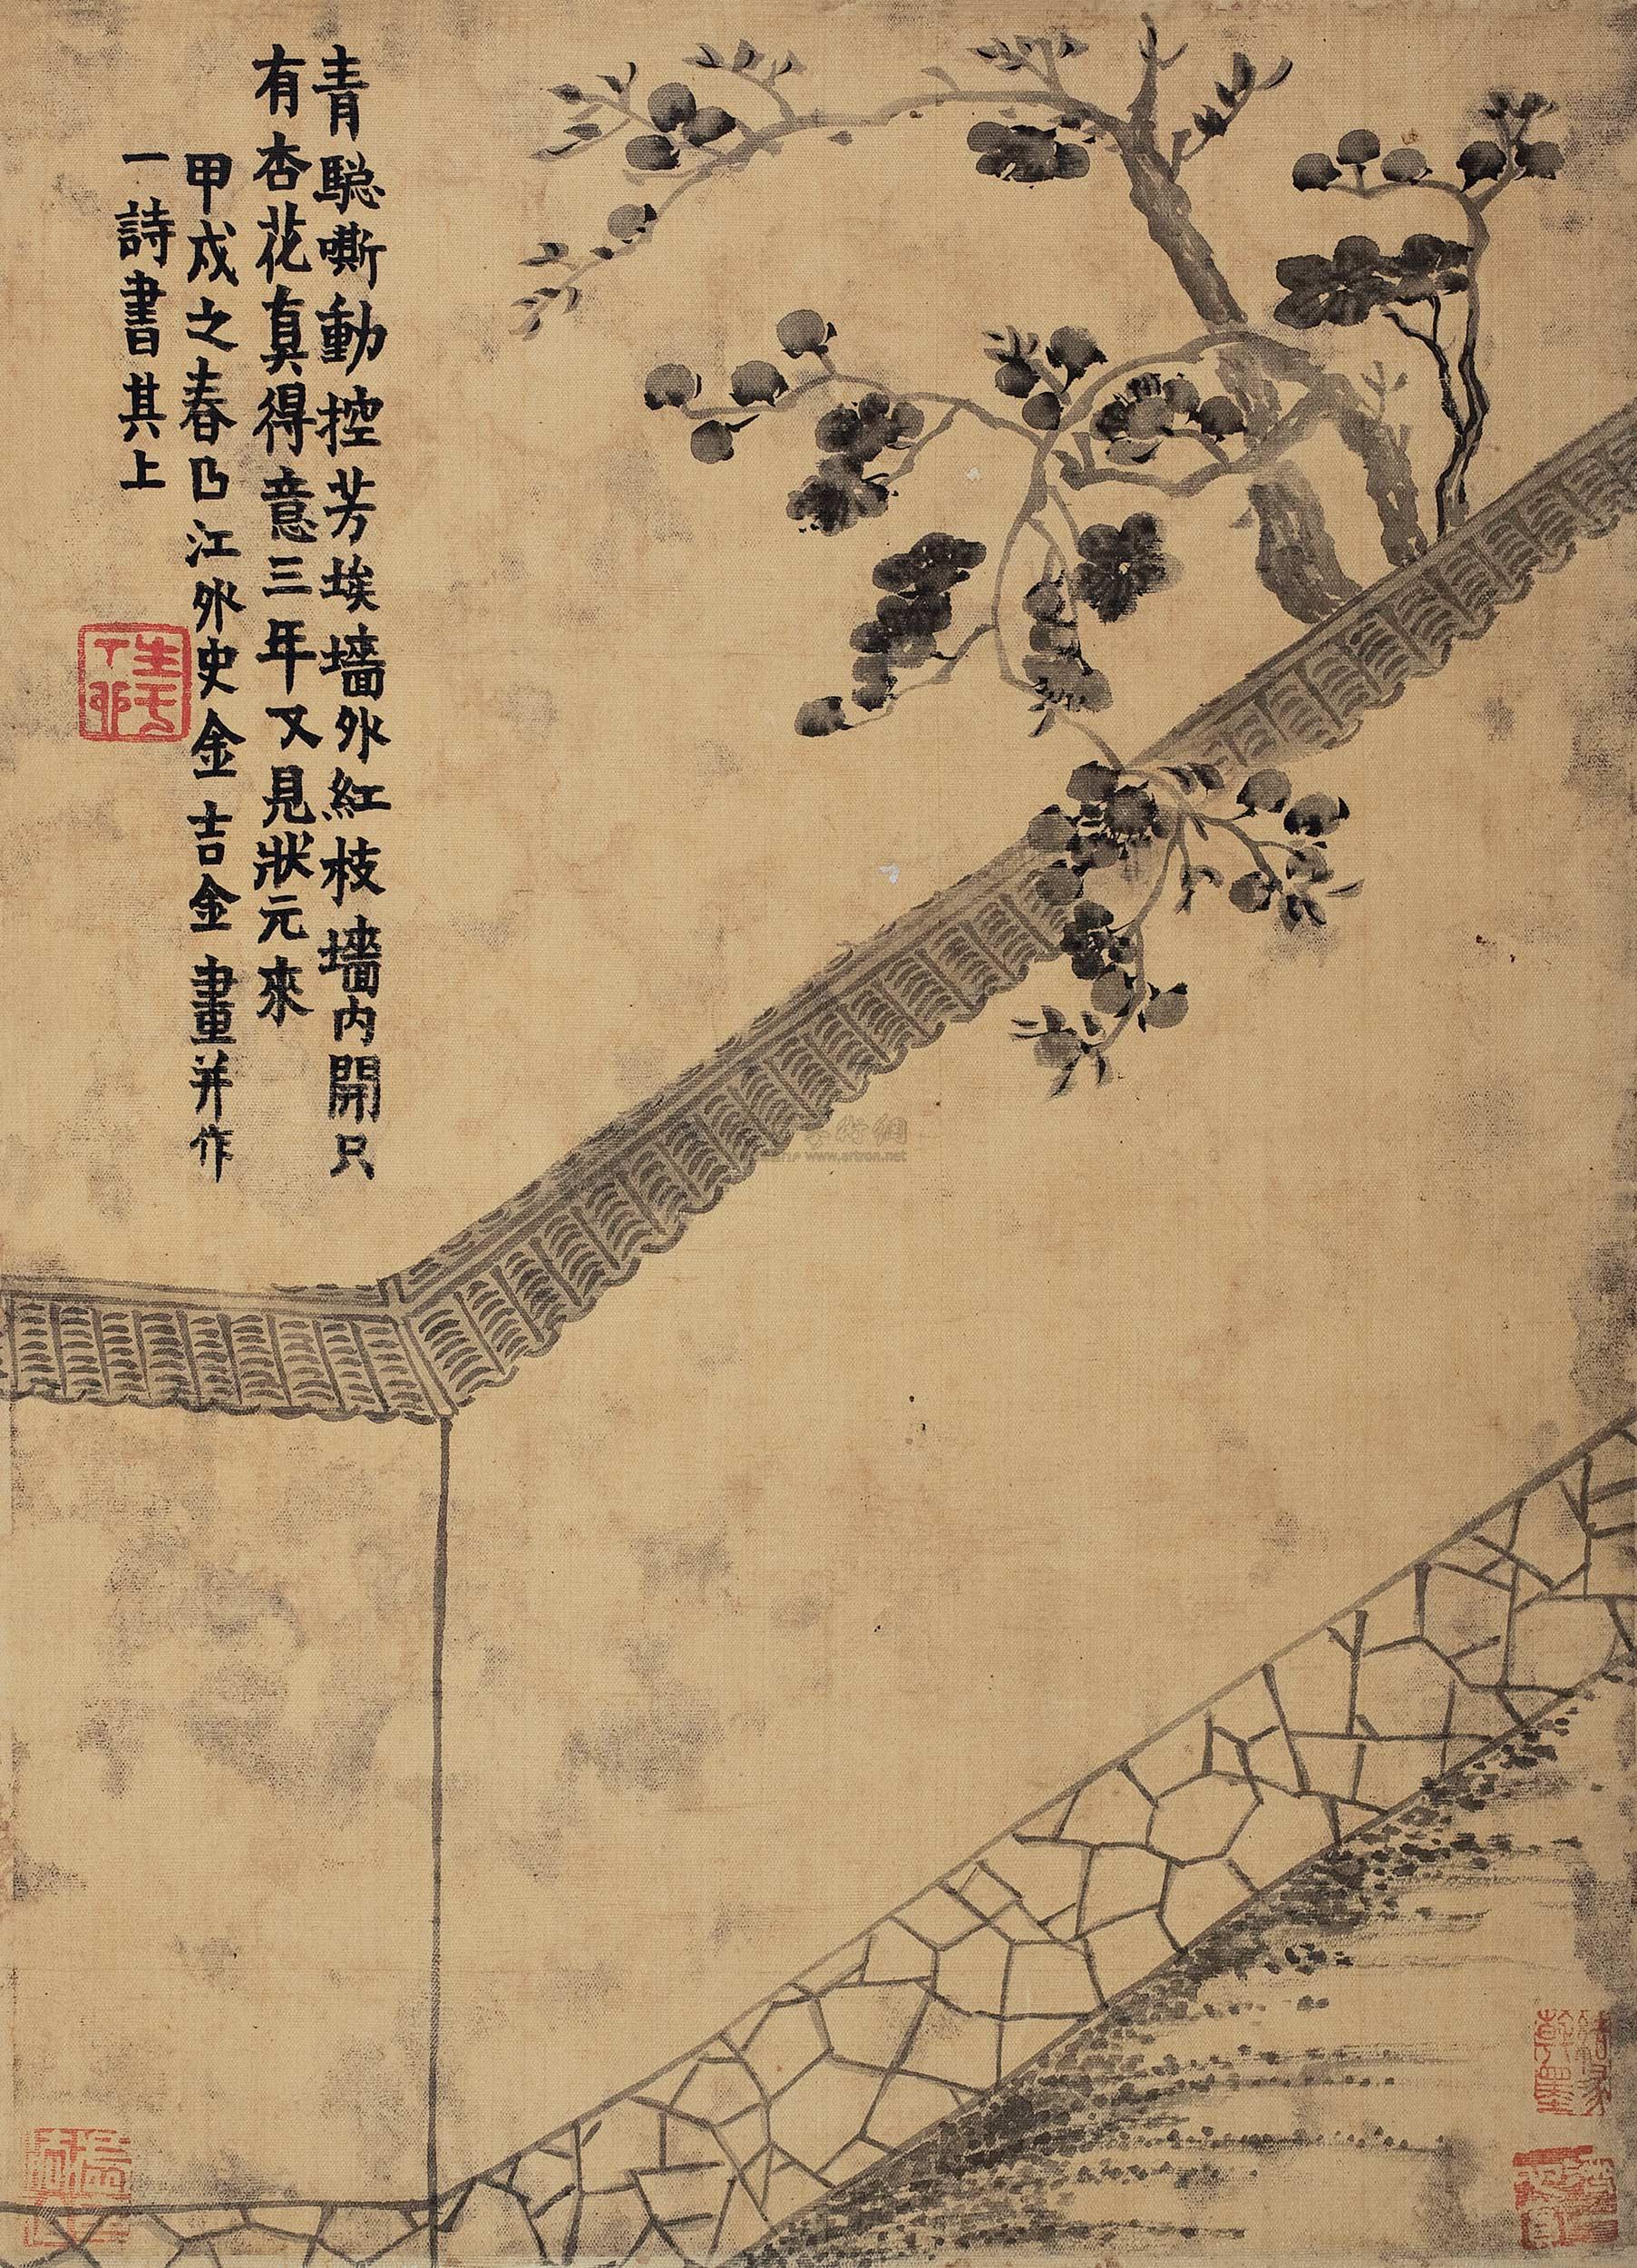 青驄嘶動控芳埃墻外紅枝墻内開只
有杏花真得意三年又見狀元來
甲戍之春㠯江外史金吉金畫并作
一詩書其上
www.artron.net